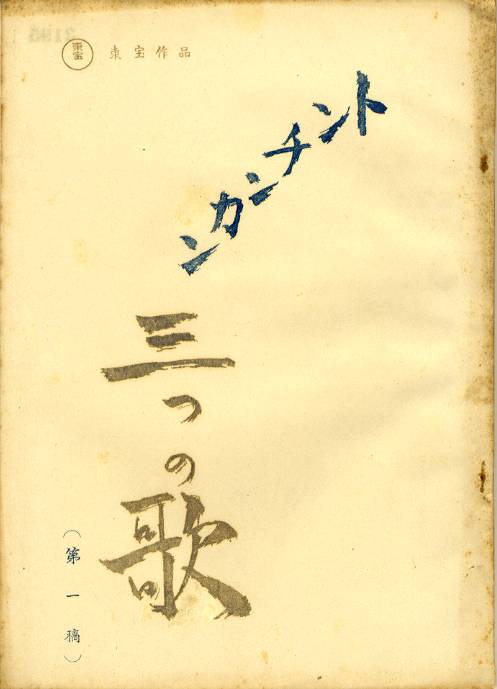 東宝
東宝作品
トンチンカン
三つの歌
（第一稿）